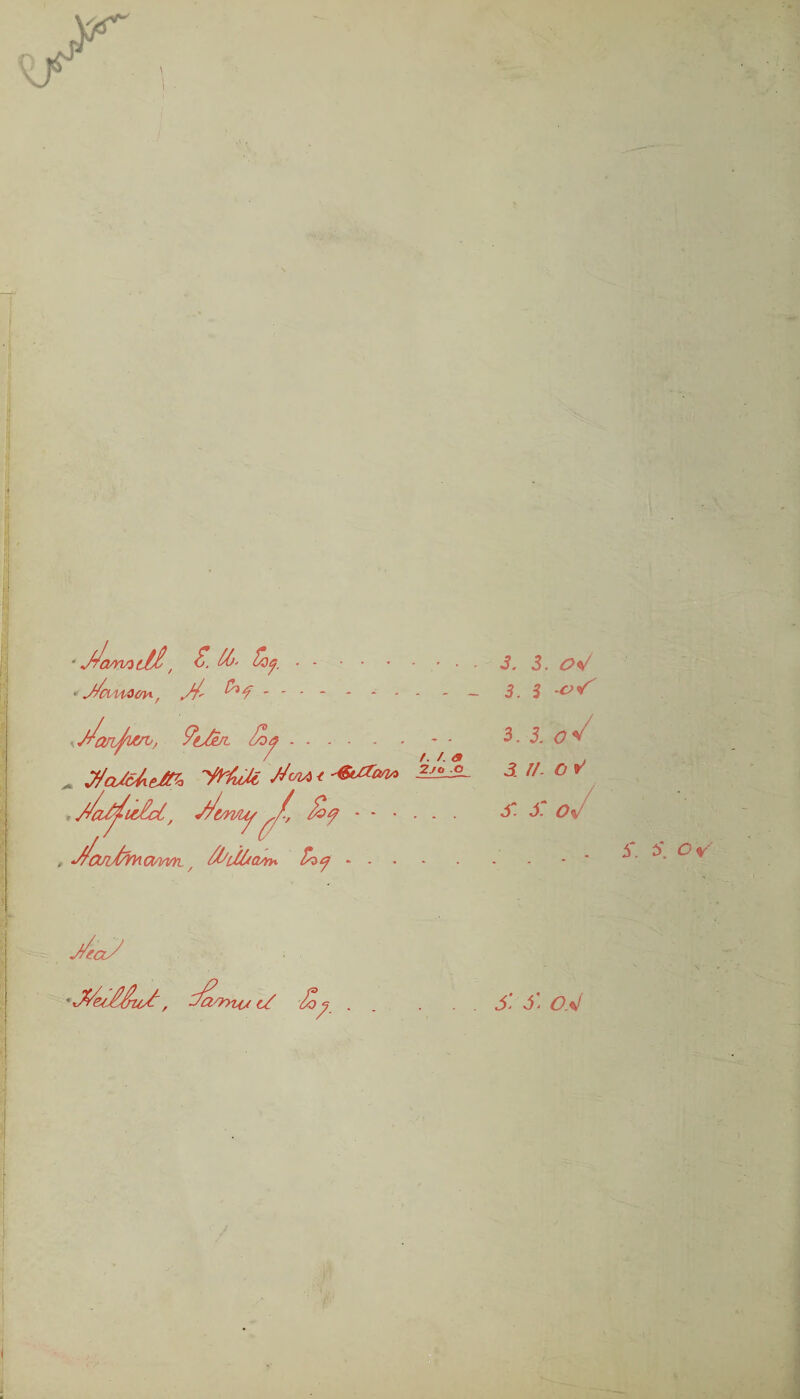 Hansell, E. W. Esq. . . . . . . . . . . 3. 3. 0 √
Hanson, H. Esq - - - - - - - - - - 3. 3 - 0 √
Harper, Peter Esq . . . . . . . - - 3. 3. 0 √
1. 1. 0
Hatchetts White Horse 2 10 . 0 3 11 - 0 √
Hatfield, Henry J., Esq - - - . . . . 5. 5. 0 √
Hartmann, William Esq - . . . . . . . . . 5. 5. 0 √
Hea
Heilbut, Samuel Esq. . . . . . . 5. 5. 0. √